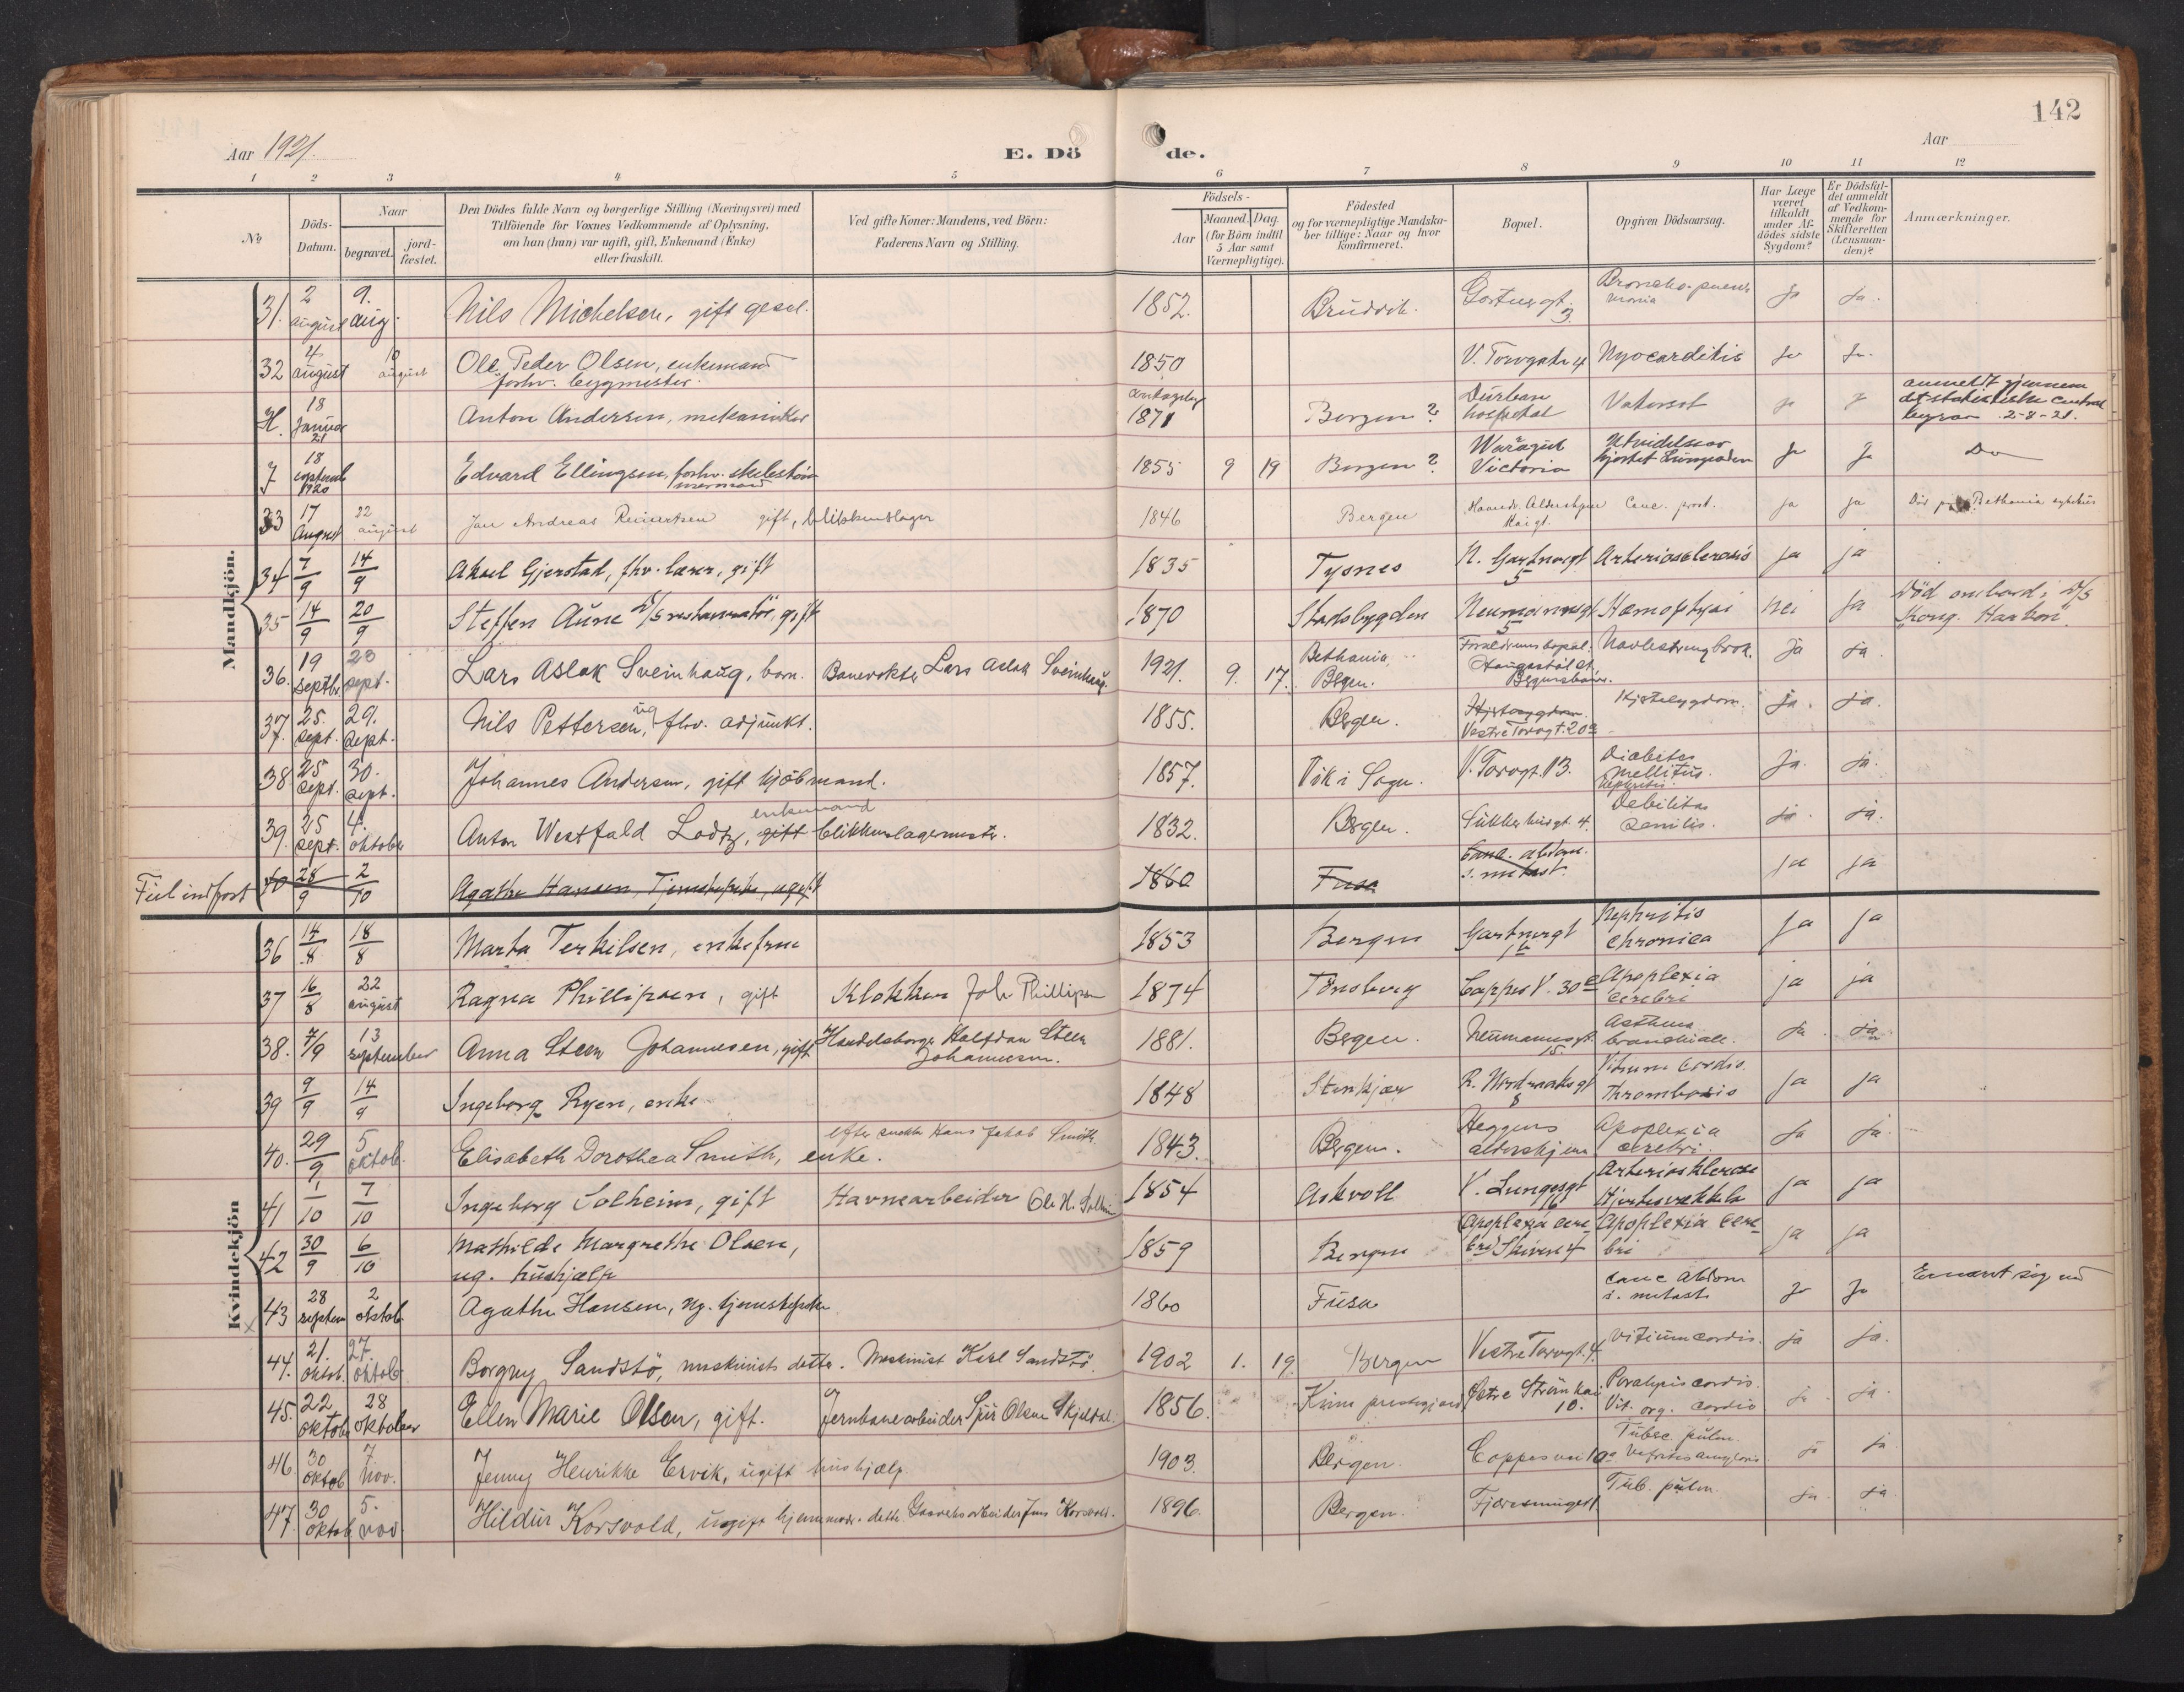 142
Aar 1921.
E. Dö de.
Aar
1 2 3 4 5 6 7 8 9 10 11 12
No
Döds-Datum.
Naar
begravet.
jord-fæstet.
Den Dödes fulde Navn og borgerlige Stilling (Næringsvei) med
Tilföiende for Voxnes Vedkommende af Oplysning,
om han (hun) var ugift, gift, Enkemand (Enke)
eller fraskilt.
Ved gifte Koner: Mandens, ved Börn:
Faderens Navn og Stilling.
Födsels-
Aar
Maaned. Dag.
(for Börn indtil
5 Aar samt
Værnepligtige).
Födested
og for værnepligtige Mandska-
ber tillige: Naar og hvor
konfirmeret.
Bopæl.
Opgiven Dödsaarsag.
Har Læge
været
tilkaldt
under Af-
dödes sidste
Sygdom?
Er Dödsfal-
det anmeldt
af Vedkom-
mende for
Skifteretten
(Lensman-
den)?
Anmærkninger.
Mandkjön.
31. 2 august 9. aug. Nils Michelsen, gift 1852. 3.
32 4 august 10 august Ole Peder Olsen, enkemand 1850 V. Torvgate 4 Myocarditis ja ja.
forhv. bygmester.
H. 18 Januar 21 Anton Andersen, mekaniker antagelig 1871 Bergen? Durban hospital Vatersot ja ja anmeldt gjennem det statistiske central byraa 2-8-21.
7 18 septemb 1920 Edvard Ellingsen, forhv. 1855 9 19 Bergen? Victoria ja ja Do
33 17 August 22 august Jan Andreas Reinertsen gift, blikkenslager 1846 Bergen Canc. prost. ja ja Död på Bethania sykehus
34 7/9 14/9 Aksel Gjerstad, fhv. lærer, gift 1835 Tysnes N. Gartnergt 5 Arteriosclerosis ja ja
35 14/9 20/9 Steffen Aune D/S restauratör, gift 1870 Stadsbygden Neumannsgt 5 Hæmoptysi nei ja Död ombord i D/S "Kong Haakon".
36. 19 septbr. 23 sept. Lars Aslak Sveinhaug, barn. Banevokter Lars Aslak Sveinhaug. 1921. 9. 17. Bethania, Bergen. Forældrenes bopæl: Haugastöl st. Bergensbanen. Navlestrengbrok. ja ja.
37. 25. sept. 29. sept. Nils Pettersen, ug fhv. adjunkt. 1855. Bergen. Hjertesygdom. Vestre Torvgt. 20a Hjertesygdom. ja. ja.
38 25 sept. 30. sept. Johannes Andersen, gift kjöbmand. 1857. Vik i Sogn. V. Torvgt. 13. Diabetes mellitus. Nephritis. ja. ja.
39. 25 sept. 4. oktober Anton Westfald Lodtz, gift enkemand blikkenslagermester. 1832. Bergen. Sukkerhusgt. 4. Debilitas senilis. ja. ja.
Feil indfört 40 28/9 2/10 Agathe Hansen, Tjenestepike, ugift 1860 Fusa Canc. abdom. s. metast. ja ja
Kvindekjön
36 14/8 18/8 Marta Terkilsen, enkefrue 1853 Bergen Gartnergt Nephritis chronica ja ja
37 16/8 22 august Ragna Phillipsen, gift Klokker Joh Phillipsen 1874 Tönsberg Cappes V. 30 Apoplexia cerebri ja ja
38. 7/9 13 september Anna Steen Johannesen, gift Handelsborger Halfdan Steen Johannesen. 1881. Bergen. Neumannsgt. 15. Asthma bronchiale. ja. ja.
39 9/9 14/9 Ingeborg Ryen, enke 1848 Stenkjær 8 Vitium cordis. Thrombosis ja ja
40. 29/9 5 oktob. Elisabeth Dorothea Smith, enke. efter snekker Hans Jakob Smith. 1843. Bergen. Heggens aldershjem Apoplexia cerebri. ja ja.
41 1/10 7/10 Ingeborg Solheim, gift Havnearbeider Ole H. Solheim 1854 Askvoll V. Lungegt 16 Arteriosklerose Hjertesvekkelse ja ja
42 30/9 6/10 Mathilde Margrethe Olsen, 1859 Bergen Apoplexia cerebri Skivene 4 Apoplexia cerebri ja ja
ug. hushjælp
43 28 septem 2 oktob. Agathe Hansen, ug. tjenestepike 1860 Fusa canc abdom s. metast. ja ja
44. 21. oktob. 27. oktob. Borgny Sandstö, maskinists datter. Maskinist Karl Sandstö. 1902 1. 19. Bergen Vestre Torvgt. 4. Vitium cordis. ja ja.
45. 22 oktober 28 oktober Ellen Marie Olsen, gift. Jernbanearbeider Olsen Skjeldal. 1856. Kinn prestegjeld Östre Strömkai 10. Paralysis cordis. Vit. org. cordis ja. ja.
46. 30 oktob. 7. nov. Jenny Henrikke Ervik, ugift hushjælp. 1903. Bergen. Cappes vei 10a Tubec. pulm. ja ja.
47. 30 oktob. 5. nov. Hildur Korsvold, ugift hjemmevær. datter. Gasverksarbeider Jens Korsvold. 1896. Bergen. Tub. pulm. ja. ja.